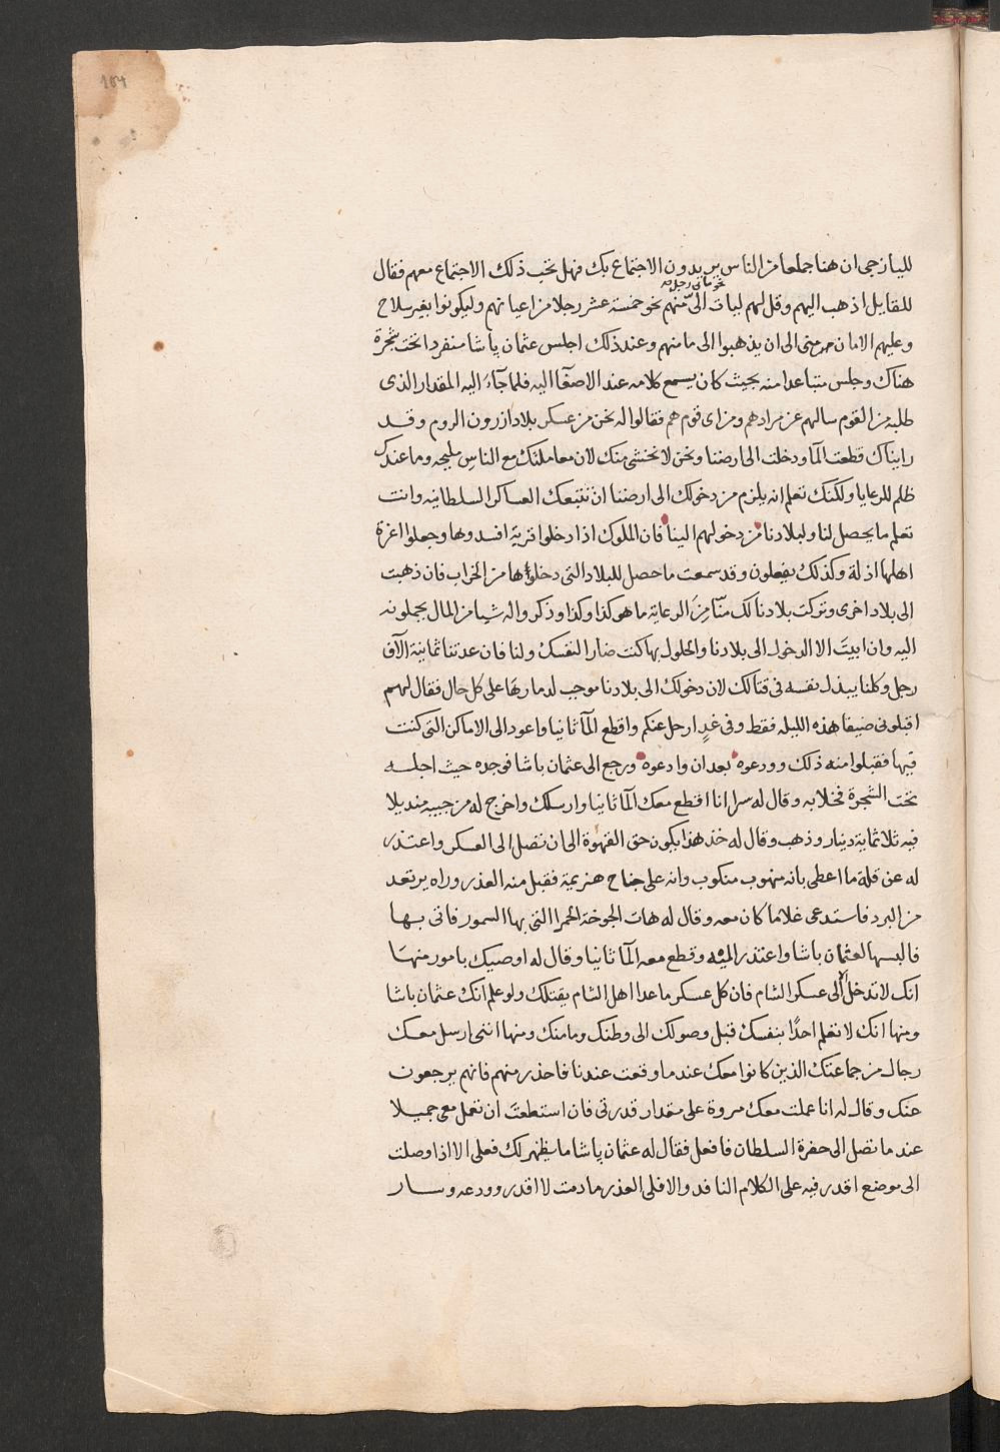 104
لليازجى ان هنا جمعا من الناس يريدون الاجتماع بك فهل تحب ذلك الاجتماع معهم فقال
للقايل اذهب اليهم وقل لهم ليات الىّ منهم نحو خمسة عشر رجلا من اعيانهم وليكونوا بغير سلاح
وعليهم الامان منى الى ان يذهبوا الى مامنهم وعند ذلك اجلس عثمان باشا منفردا تحت شجرة
هناك وجلس متباعدا منه بحيث كان يسمع كلامه عند الاصغآ اليه فلما جآء اليه المقدار الذى
طلبه من القوم سالهم عن مرادهم ومن اى قوم هم فقالوا له نحن من عسكر بلاد ازرون الروم وقد
رايناك قطعت المآ ودخلت الى ارضنا ونحن لا نخشى منك لان معاملتك مع الناس مليحه وما عندك
ظلم للرعايا ولكنك تعلم انه يلزم من دخولك الى ارضنا ان تتبعك العساكر السلطانيه وانت
تعلم ما يحصل لنا ولبلادنا من دخولهم الينا فان الملوك اذا دخلوا قرية افسدوها وجعلوا اعزة
اهلها اذلة وكذلك يفعلون وقد سمعت ما حصل للبلاد التى دخلوها من الخراب فان ذهبت
الى بلاد اخرى وتركت بلادنا لك منّا مِنَ الرعاية ما هو كذا وكذا وذكروا له شيا من المال يحملونه
اليه وان ابيتَ الا الدخول الى بلادنا والحلول بها كنت ضارا لنفسك ولنا فان عدتنا ثمانية آلاف
رجل وكلنا يبذل نفسه فى قتالك لان دخولك الى بلادنا موجب لدمارها على كل حال فقال لهم
اقبلونى ضيفا هذه الليله فقط وفى غدٍ ارحل عنكم واقطع المآ ثانيا واعود الى الاماكن التى كنت
فيها فقبلوا منه ذلك وودعوه بعد ان وادعوه ورجع الى عثمان باشا فوجده حيث اجلسه
تحت الشجرة فخلا به وقال له سرا انا اقطع معك المآ ثانيا وارسلك واخرج له من جيبه منديلا
فيه ثلاثماية دينار وذهب وقال له خذ هذا يكون حق القهوة الى ان تصل الى العسكر واعتذر
له عن قلة ما اعطى بانه منهوب منكوب وانه على جناح هزيمة فقبل منه العذر وراه يرتعد
من البرد فاستدعى غلاما كان معه وقال له هات الجوخة الحمرا التى بها السمور فاتى بها
فالبسها لعثمان باشا واعتذر اليه وقطع معه المآ ثانيا وقال له اوصيك بامور منها
انك لا تدخل الى عسكر الشام فان كل عسكر ما عدا اهل الشام يقتلك ولو علم انك عثمان باشا
ومنها انك لا تعلم احدًا بنفسك قبل وصولك الى وطنك ومامنك ومنها اننى ارسل معك
رجالا من جماعتك الذين كانوا معك عندما وقعت عندنا فاحذر منهم فانهم يرجعون
عنك وقال له انا عملت معك مروة على مقدار قدرتى فان استطعتَ ان تعمل معى جميلا
عند ما تصل الى حضرة السلطان فافعل فقال له عثمان باشا ما يظهر لك فعلى الا اذا وصلت
الى موضع اقدر فيه على الكلام النافد والا فلى العذر ما دمت لا اقدر وودعه وسار